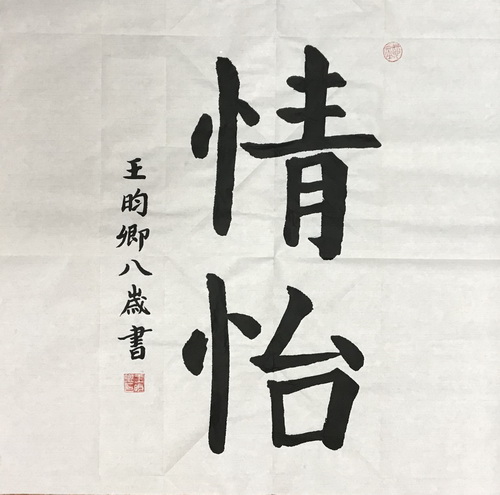 情怡
王昀卿八歲書